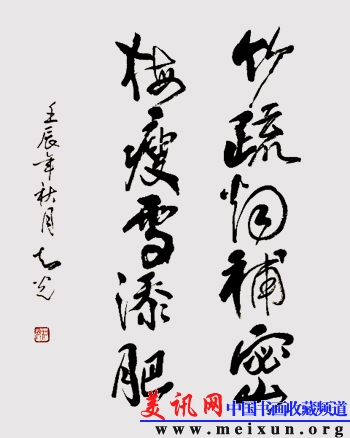 竹疏烟補密
梅瘦雪添肥
壬辰年秋月
美讯网 中国书画收藏频道
www.meixun.org